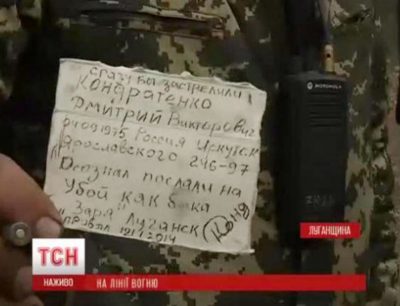 Сразу вы застрелили
Кондратенко
Дмитрий Викторович
04091975 Россия Иркутск
Ярославского 246-97
Осознал послали на
Убой как быка
"Заря" Луганск
19.7.2014
MOTOROLA
ЛУГАНЩИНА
ТСН
НАЖИВО
НА ЛІНІЇ ВОГНЮ